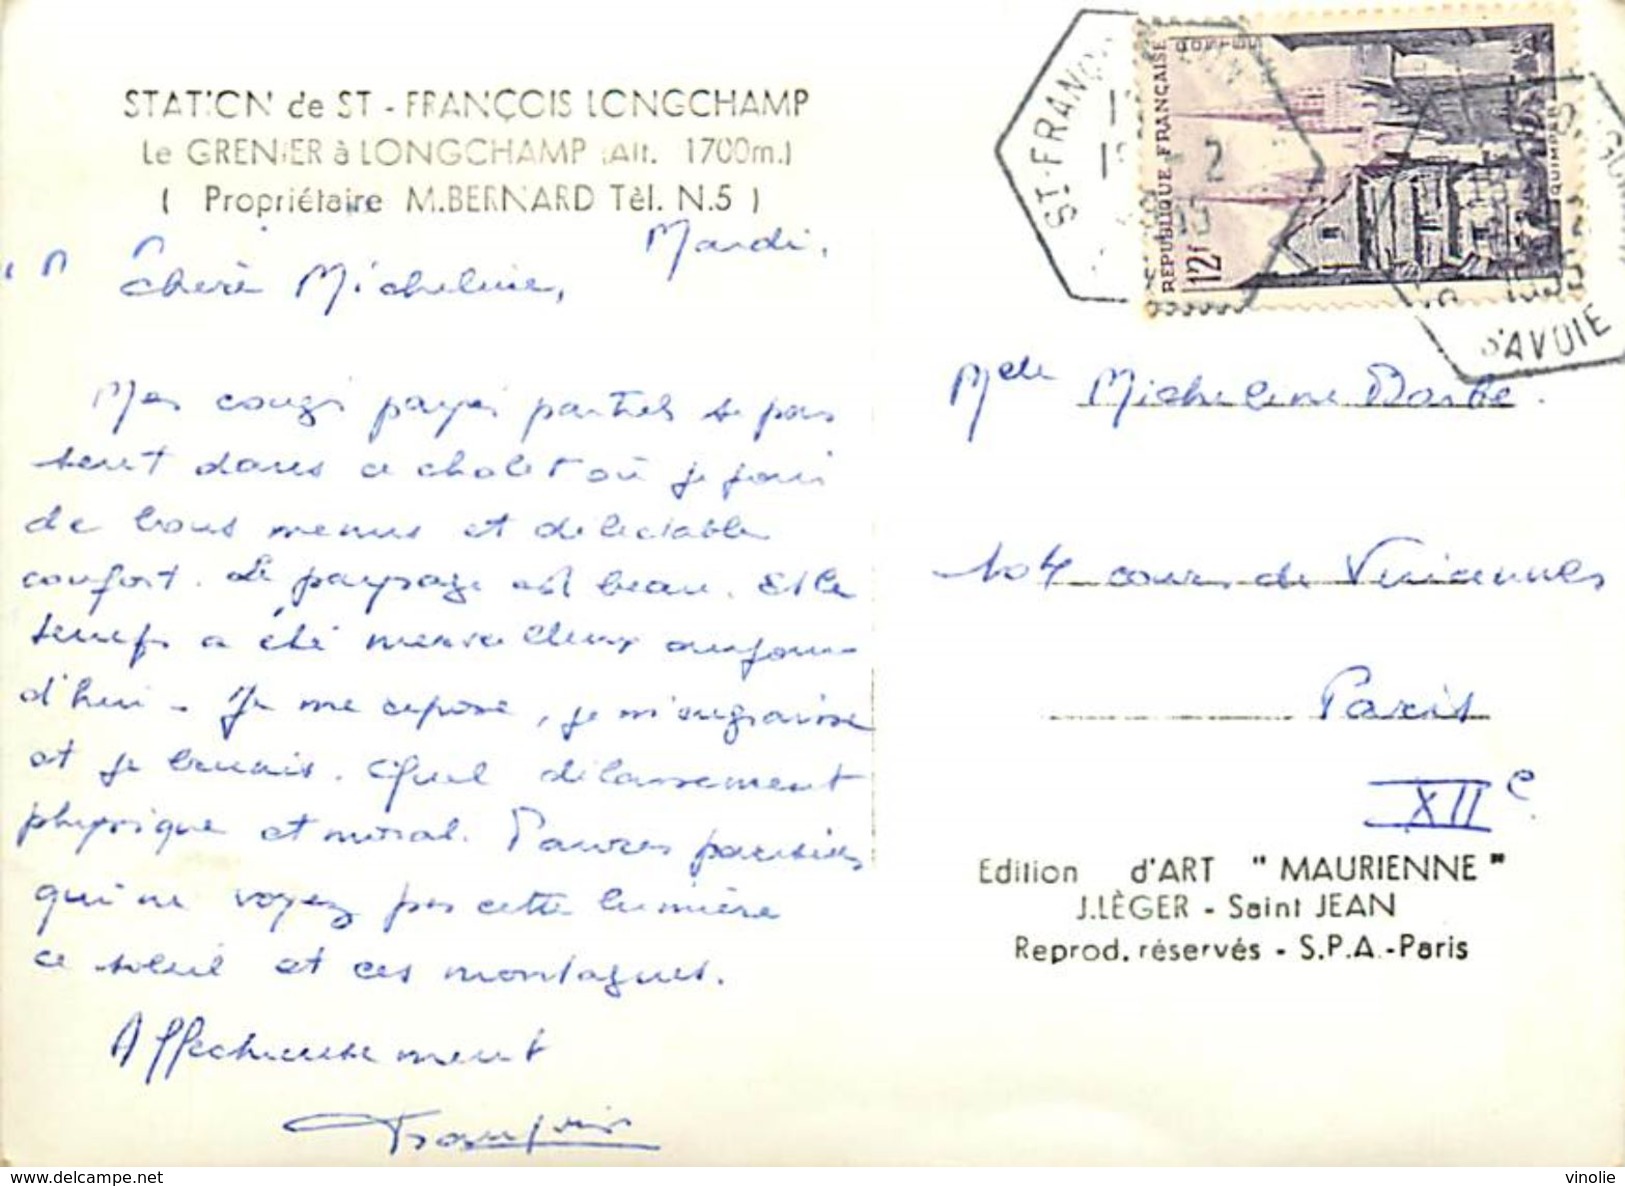 STATION de ST - FRANÇOIS LONGCHAMP
Le GRENIER à LONGCHAMP (Alt. 1700m.)
( Propriétaire M.BERNARD Tèl. N.5 )
Mardi,
Chère Micheline,
Mes congés payés partiels se pas
sent dans ce chalet où je jouis
de bons menus et délectable
confort. Le paysage est beau. Et le
temps a été merveilleux aujour
d'hui - Je me repose, je m'engraisse
et je brunis. Quel délassement
physique et moral. Pauvres parisiens
qui ne voyez pas cette lumière
ce soleil et ces montagnes.
Affectueusement
François
ST-FRANÇ
2
REPUBLIQUE FRANÇAISE
POSTES
12f
QUIMPER
1955
SAVOIE
Melle Micheline Barbe.
104 cours de Vincennes
Paris
XIIe
Edition d'ART " MAURIENNE "
J.LÈGER - Saint JEAN
Reprod. réservés - S.P.A.-Paris
vinolie